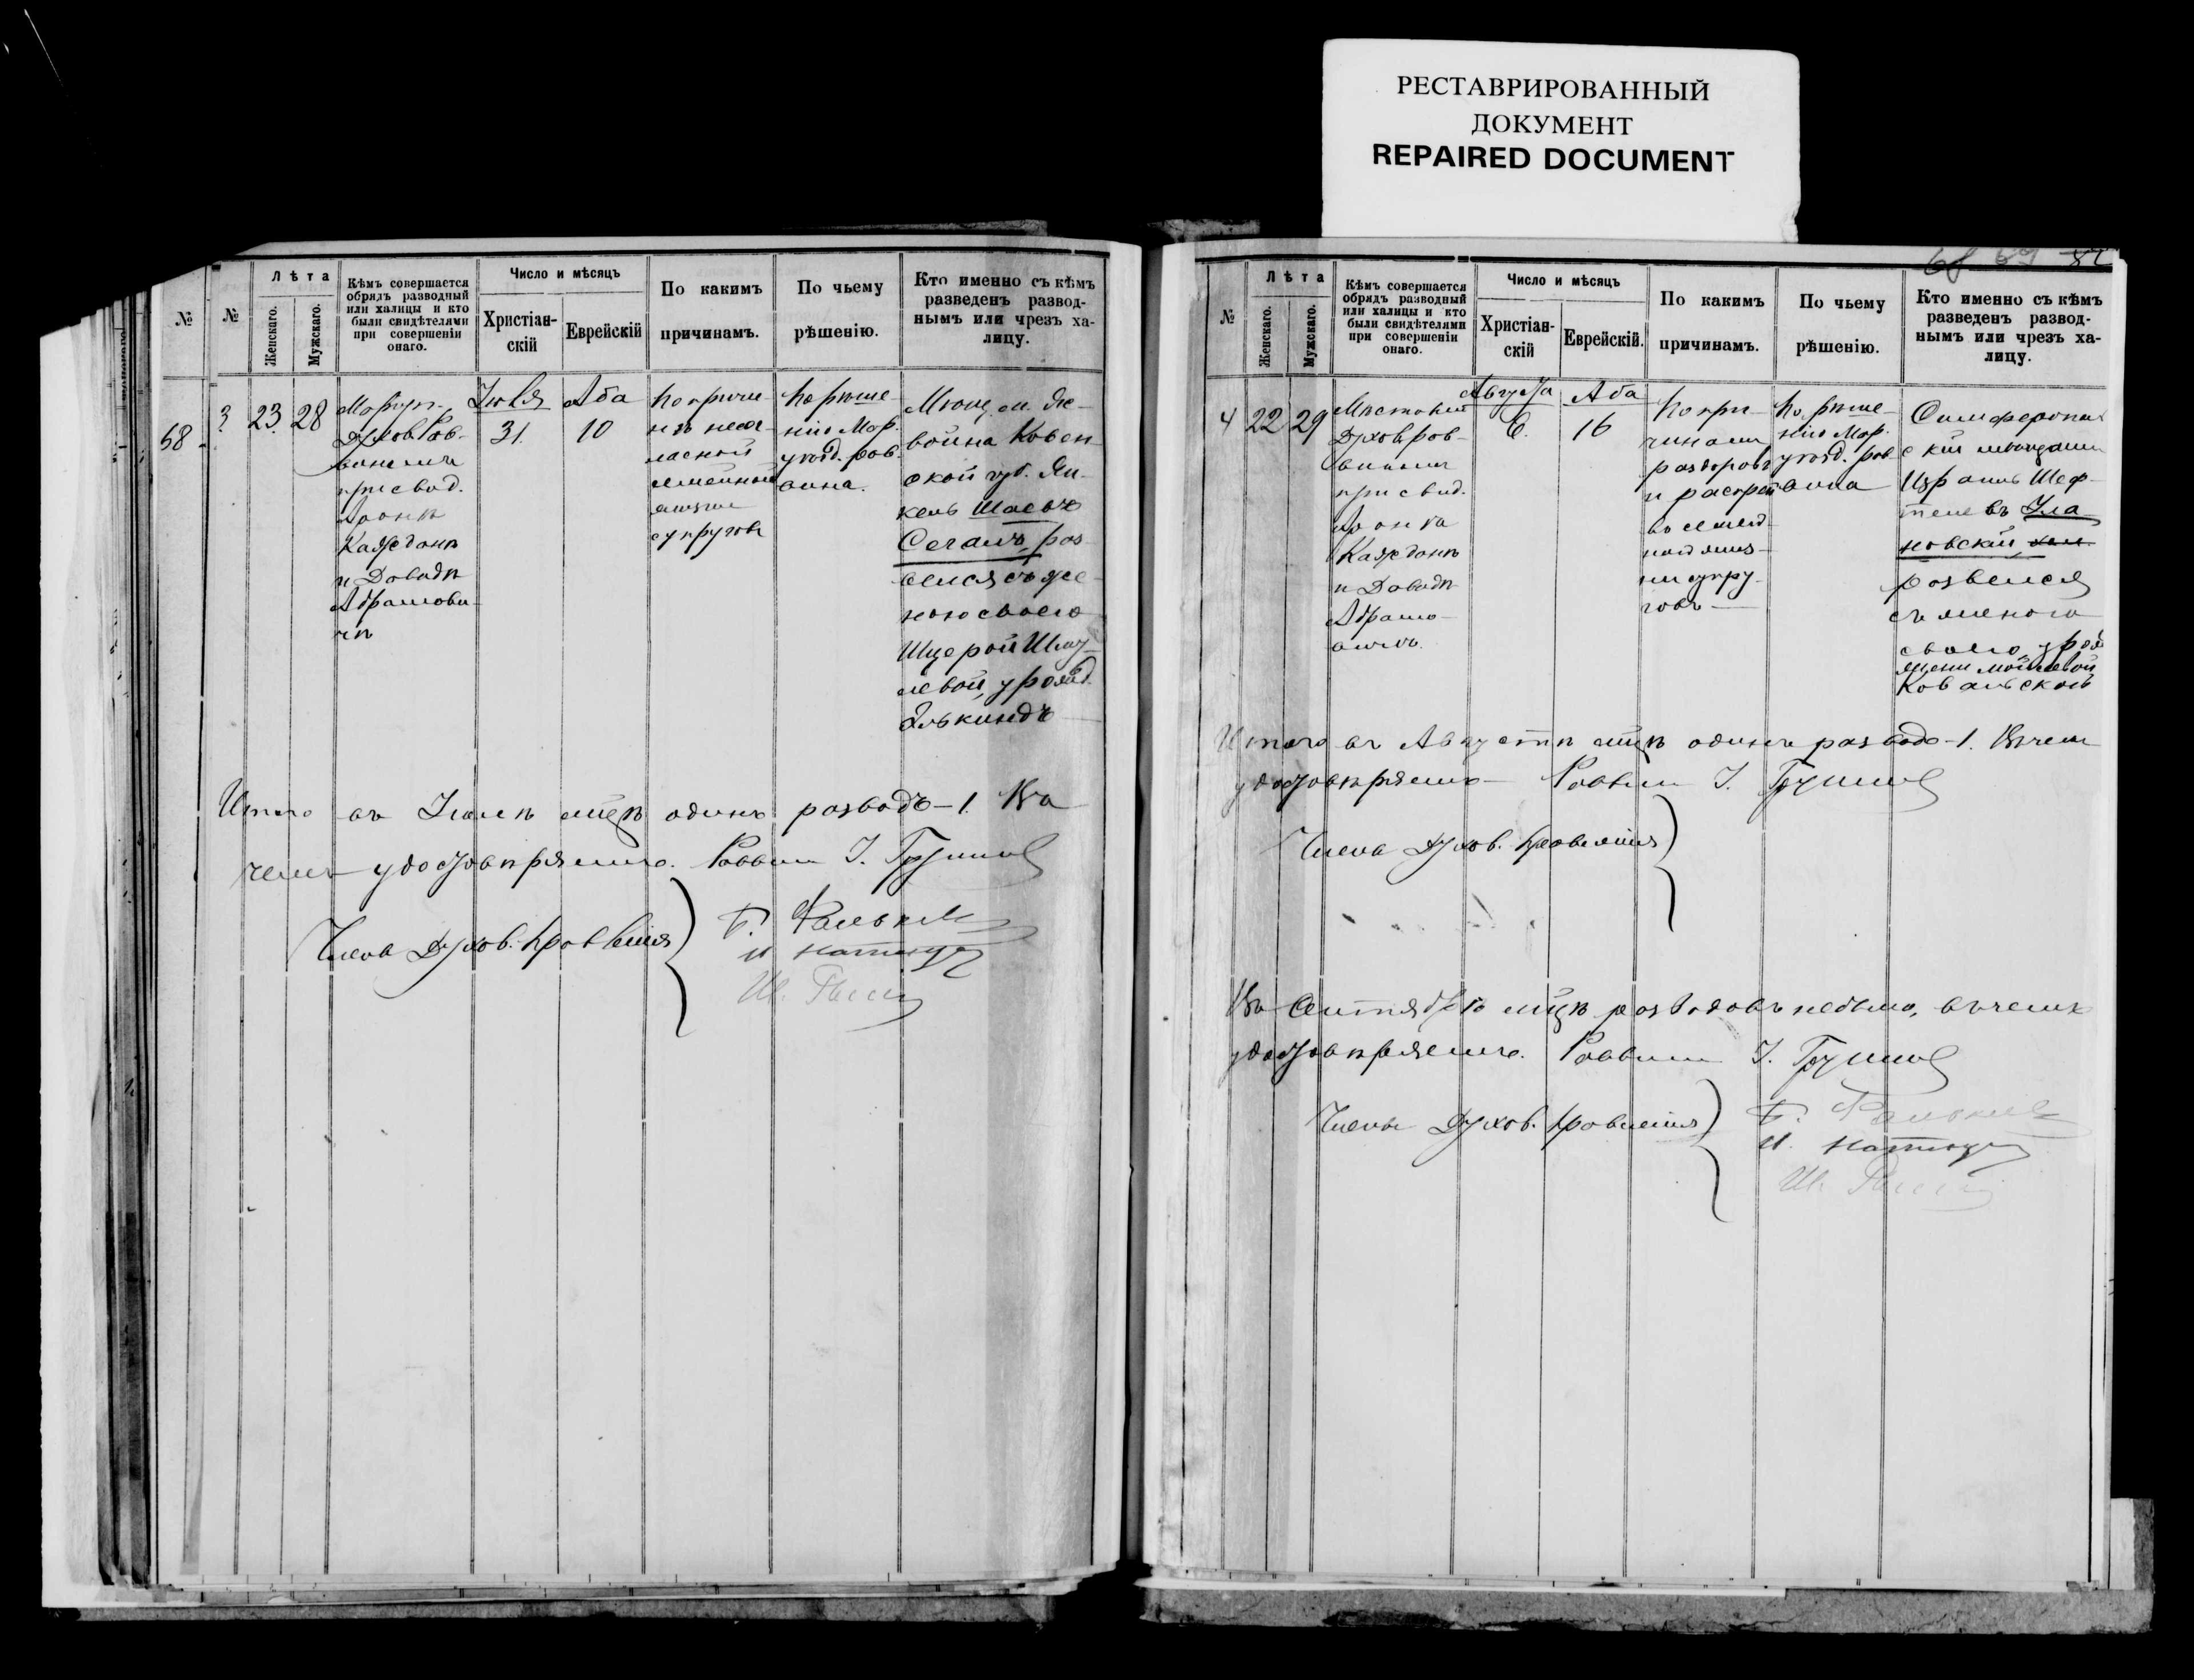 РЕСТАВРИРОВАННЫЙ
ДОКУМЕНТ
REPAIRED DOCUMENT
№
№
Лѣта
Женскаго.
Мужскаго.
Кѣмъ совершается
обрядъ разводный
или халицы и кто
были свидѣтелями
при совершеніи
онаго.
Число и мѣсяцъ
Христіан-
скій
Еврейскій
По какимъ
причинамъ.
По чьему
рѣшенію.
Кто именно съ кѣмъ
разведенъ развод-
нымъ или чрезъ ха-
лицу.
68
3
23
28
Духов Рав-
виномъ
при свид.
Аронѣ
Каждонъ
и Давидѣ
Абрамови-
чѣ
Іюля
31.
Аба
10
По причи-
нѣ несог-
ласной
семейной
жизни
супруговъ
По рѣше-
нію Мар.
уѣзд. рав-
вина.
Ковен-
ской губ. Ян-
кель Шаевъ
Сегаль, раз-
велся съ же-
ною своею
Шмуй-
левой, урожд.
Элькиндъ
Итого въ Іюлѣ мцѣ одинъ разводъ-1. Въ
чемъ удостовѣряемъ. Раввинъ І.
Члены Духов. Правленія
№
Лѣта
Женскаго.
Мужскаго.
Кѣмъ совершается
обрядъ разводный
или халицы и кто
были свидѣтелями
при совершеніи
онаго.
Число и мѣсяцъ
Христіан-
скій
Еврейскій.
По какимъ
причинамъ.
По чьему
рѣшенію.
Кто именно съ кѣмъ
разведенъ развод-
нымъ или чрезъ ха-
лицу.
68 69
4
22
29
Мѣстный
Духов рав-
виномъ
при свид.
Арона
Каждонъ
и Давидѣ
Абрамо-
вичъ.
Августа
6.
Аба
16
По при-
чинамъ
раздоровъ
и распрей
въ семей-
ной жиз-
ни супру-
говъ
По рѣше-
нію Мар.
уѣзд. рав-
вина
Симферополь
скій мѣщанинъ
Израиль Шеф-
телевъ Ула
новскій,
развелся
съ женою
своею урож
Ковальской
Итого въ Августѣ мцѣ одинъ разводъ-1. Въ чемъ
удостовѣряемъ Раввинъ І.
Члены Духов. Правленія
Въ Сентябрѣ мцѣ разводовъ небыло, въ чемъ
удостовѣряемъ. Раввинъ І.
Члены Духов. Правленія